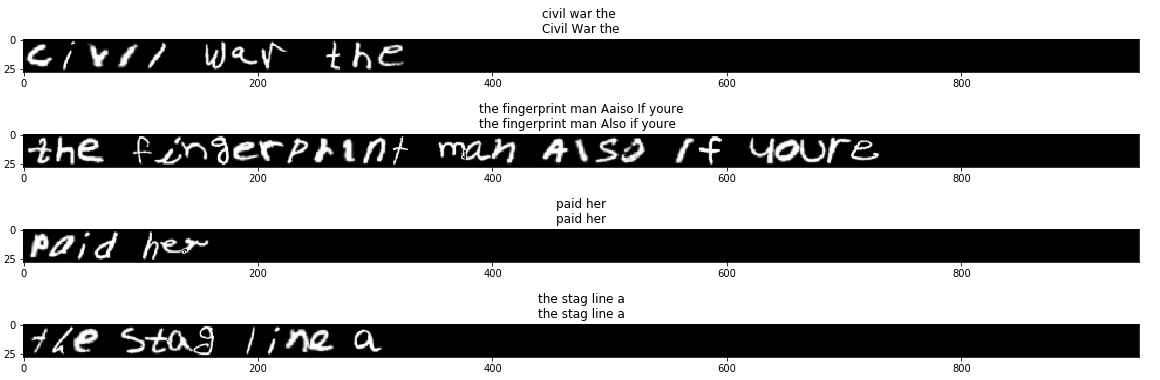 civil war the
Civil War the
0
25
civil war the
0 200 400 600 800
the fingerprint man Aaiso If youre
the fingerprint man Also if youre
0
25
the fingerprint man Also If youre
0 200 400 600 800
paid her
paid her
0
25
paid her
0 200 400 600 800
the stag line a
the stag line a
0
25
the stag line a
0 200 400 600 800